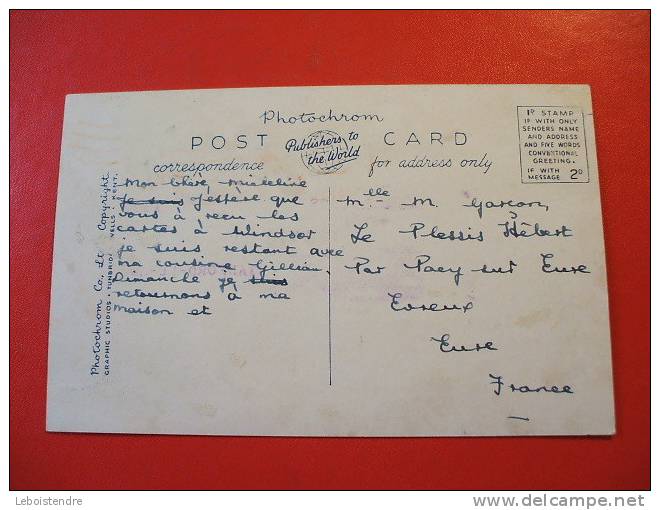 Photochrom
POST CARD
Publishers to
the World
correspondence
for address only
1D STAMP
IF WITH ONLY
SENDERS NAME
AND ADDRESS
AND FIVE WORDS
CONVENTIONAL
GREETING.
IF WITH
MESSAGE 2D
Photochrom Co., Lt. Copyright.
GRAPHIC STUDIOS • TUNBRIDGE WELLS • KENT.
Mon chère Micheline
je suis J'espère que
vous à reçu les
cartes à Windsor
je suis restant avec
ma cousine Gillian.
Dimanche je suis
retournons à ma
maison et
Mlle M. Garçon,
Le Plessis Hébert
Par Pacy sur Eure
Evreux
Eure
France
Leboistendre
delcampe.net